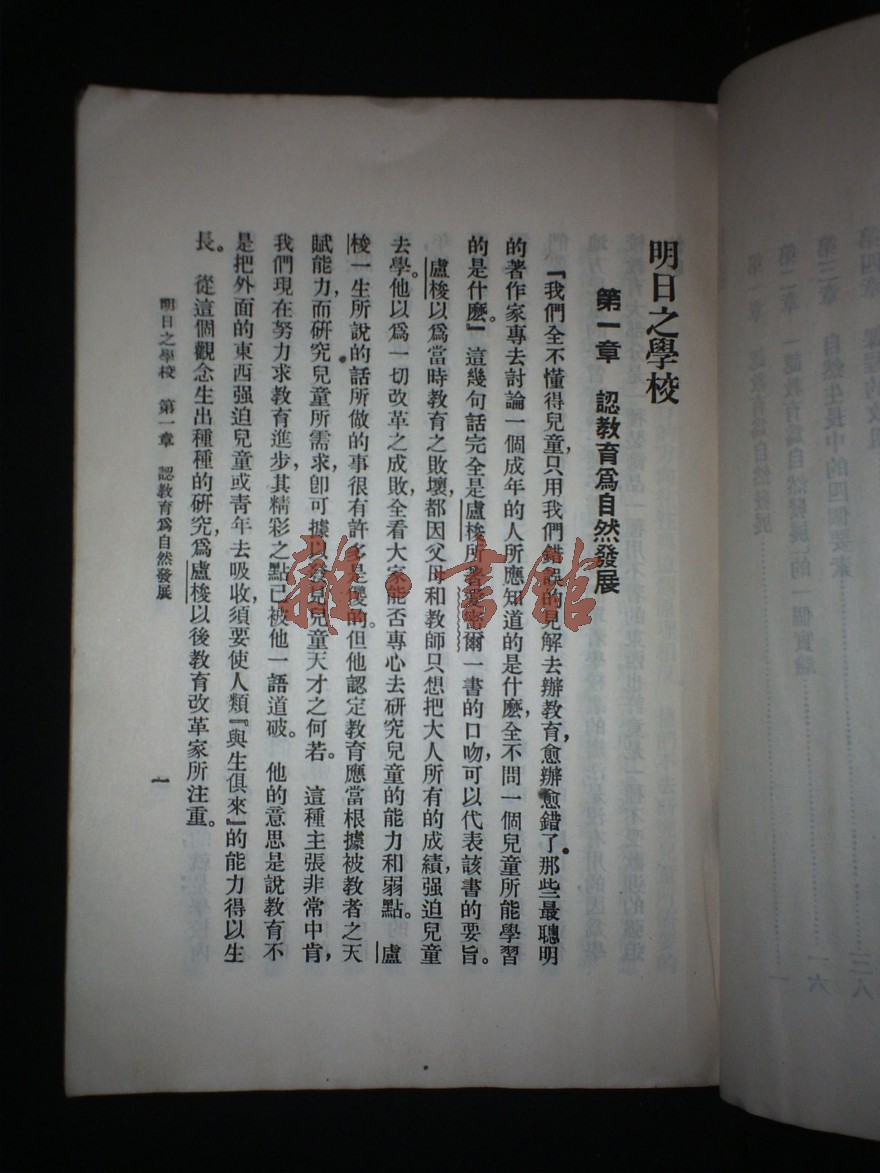 明日之學校
第一章 認教育爲自然發展
『我們全不懂得兒童,只用我們錯誤的見解去辦教育,愈辦愈錯了。那些最聰明
的著作家專去討論一個成年的人所應知道的是什麼,全不問一個兒童所能學習
的是什麼。』這幾句話完全是盧梭所著愛彌爾一書的口吻,可以代表該書的要旨。
盧梭以爲當時教育之敗壞,都因父母和教師只想把大人所有的成績,强迫兒童
去學。他以爲一切改革之成敗,全看大家能否專心去研究兒童的能力和弱點。 盧
梭一生所說的話所做的事很有許多是儍的。但他認定教育應當根據被教者之天
賦能力,而研究兒童所需求,卽可據以發見兒童天才之何若。 這種主張非常中肯,
我們現在努力求教育進步,其精彩之點已被他一語道破。 他的意思是說教育不
是把外面的東西强迫兒童或靑年去吸收,須要使人類『與生俱來』的能力得以生
長。 從這個觀念生出種種的研究,爲盧梭以後教育改革家所注重。
明日之學校 第一章 認教育爲自然發展
一
雜·書館